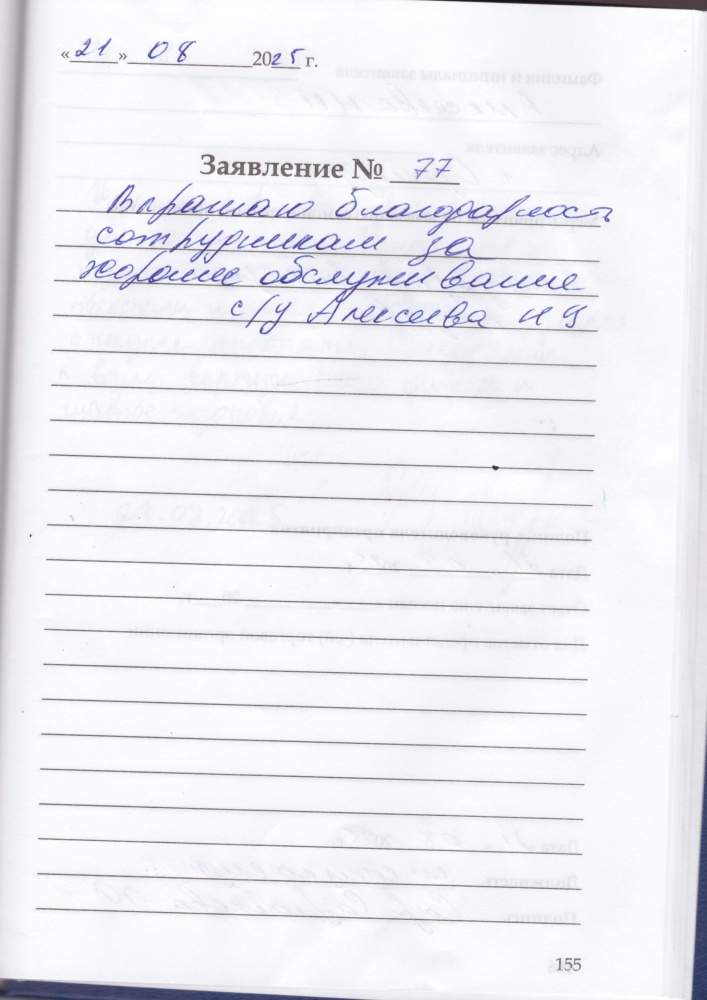 «21» 08 2025 г.
Заявление № 77
Выражаю благодарность
сотрудникам за
хорошее обслуживание
с/у Алексеева Н
155